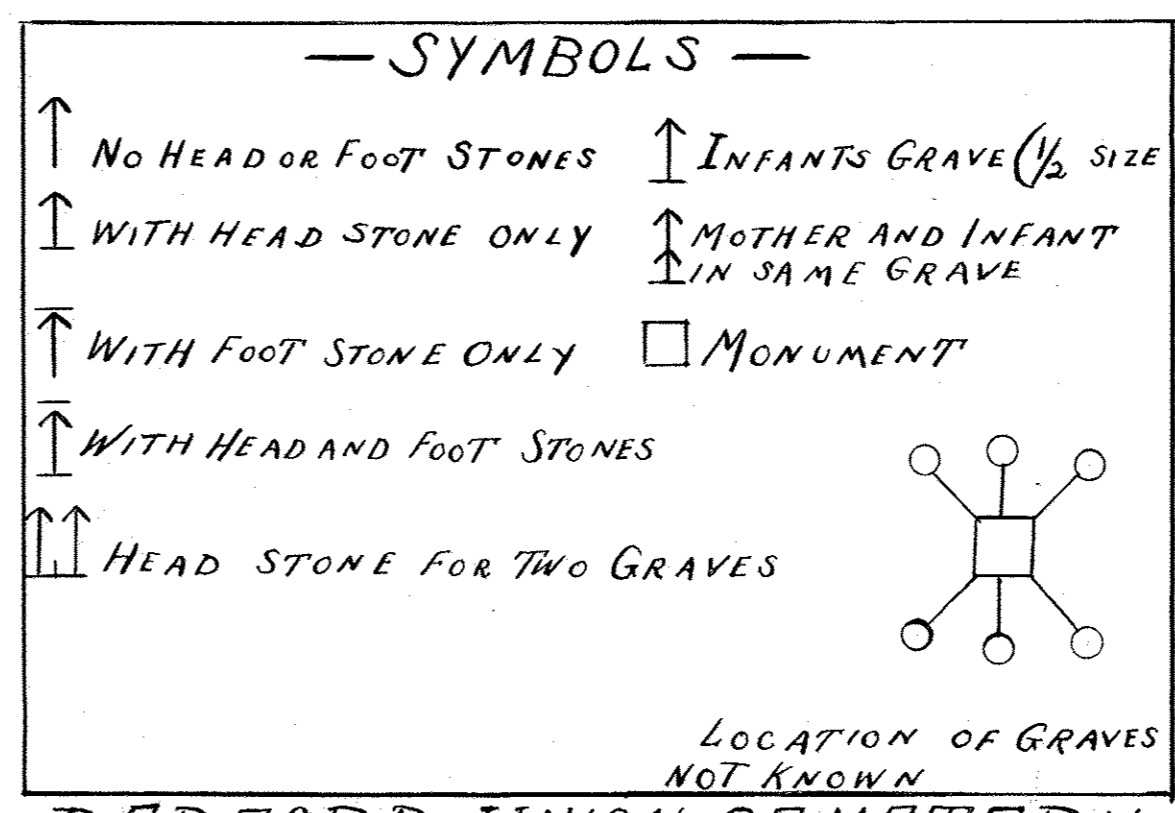 — SYMBOLS —
NO HEAD OR FOOT STONES
WITH HEAD STONE ONLY
WITH FOOT STONE ONLY
WITH HEAD AND FOOT STONES
HEAD STONE FOR TWO GRAVES
INFANTS GRAVE (1/2 SIZE
MOTHER AND INFANT
IN SAME GRAVE
MONUMENT
LOCATION OF GRAVES
NOT KNOWN